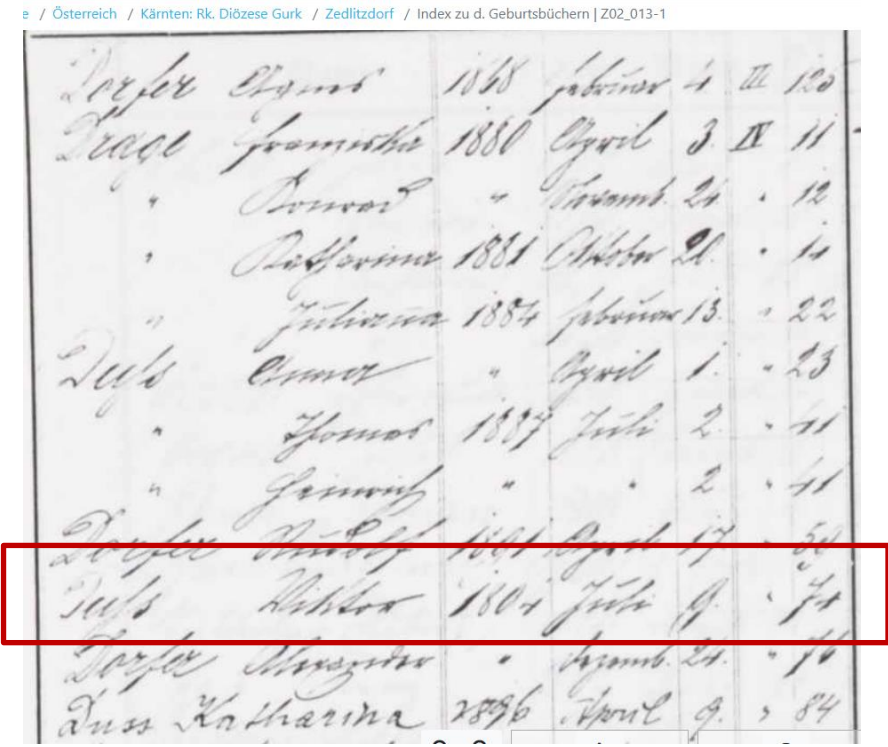 e / Österreich / Kärnten: Rk. Diözese Gurk / Zedlitzdorf / Index zu d. Geburtsbüchern | Z02_013-1
Dorfer Agnes 1868 Februar 4 III 125
Drage Franziska 1880 April 3. IV 11
" Konrad " Novemb. 24. " 12
" Katharina 1881 Oktober 20. " 14
" Juliana 1884 Februar 13. " 22
Duß Anna " April 1. " 23
" Thomas 1887 Juli 2. " 41
" Heinrich " " 2 " 41
Dorfer Rudolf 1891 April 17. " 58
Duß Viktor 1894 Juli 9. " 74
Dorfer Alexander " Dezemb. 24. " 76
Duss Katharina 1896 April 9. " 84